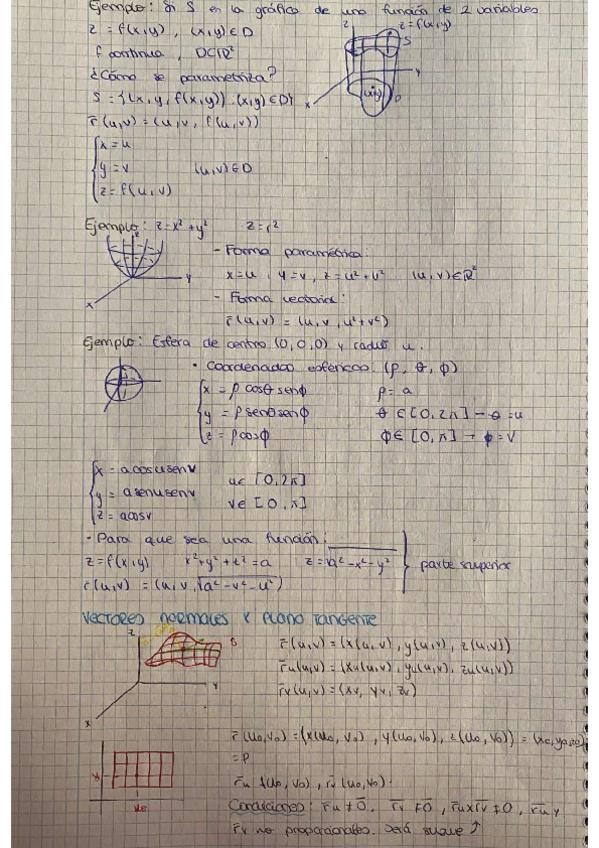 Ejemplo: Si S es la gráfica de una función de 2 variables
z = f(x,y) , (x,y) ∈ D
z
z = f(x,y)
S
f continua, D⊂ℝ²
¿Cómo se parametriza?
y
S = {(x, y, f(x,y)) : (x,y) ∈ D}
x
(x,y)
D
r̄(u,v) = (u, v, f(u,v))
x = u
y = v (u,v) ∈ D
z = f(u,v)
Ejemplo: z = x² + y² z = r²
- Forma paramétrica:
y
x = u , y = v , z = u² + v² (u,v) ∈ ℝ²
x
- Forma vectorial:
r̄(u,v) = (u, v, u² + v²)
Ejemplo: Esfera de centro (0,0,0) y radio a.
• Coordenadas esféricas: (ρ, θ, ϕ)
x = ρ cosθ senϕ ρ = a
y = ρ senθ senϕ θ ∈ [0, 2π] → θ = u
z = ρ cosϕ ϕ ∈ [0, π] → ϕ = v
x = a cosu senv u ∈ [0, 2π]
y = a senu senv v ∈ [0, π]
z = a cosv
- Para que sea una función:
z = f(x,y) x² + y² + z² = a z = √a² - x² - y² } parte superior
r̄(u,v) = (u, v, √a² - v² - u²)
VECTORES NORMALES Y PLANO TANGENTE
z
S
r̄(u,v) = (x(u,v), y(u,v), z(u,v))
r̄u(u,v) = (xu(u,v), yu(u,v), zu(u,v))
y
r̄v(u,v) = (xv, yv, zv)
x
r̄(u₀,v₀) = (x(u₀,v₀), y(u₀,v₀), z(u₀,v₀)) = (x₀,y₀,z₀)
= P
r̄u (u₀,v₀), r̄v (u₀,v₀).
u₀
Condiciones: r̄u ≠ 0̄, r̄v ≠ 0̄, r̄u x r̄v ≠ 0, r̄u y
r̄v no proporcionales. Será suave ↑